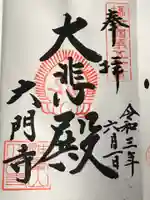 奉拝
大悲殿
大門寺
令和三年
六月一日